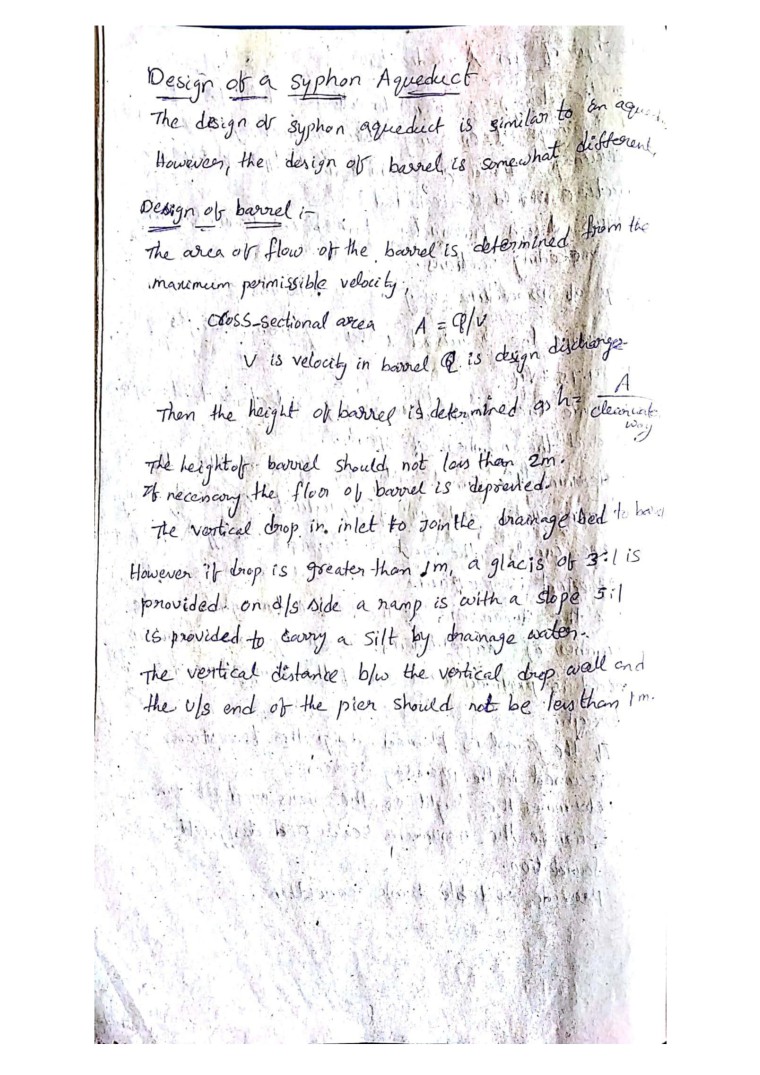 Design of a Syphon Aqueduct
The design of syphon aqueduct is similar to an
However, the design of barrel is somewhat different
Design of barrel :-
The area of flow of the barrel is determined from the
maximum permissible velocity,
cross-sectional area A = Q/V
V is velocity in barrel, Q is design discharge
Then the height of barrel is determined as h = A / clear water way
The height of barrel should not less than 2m.
If necessary the floor of barrel is depressed.
The vertical drop in inlet to join the drainage bed to
However if drop is greater than 1m, a glacis of 3:1 is
provided on d/s side a ramp is with a slope 5:1
is provided to carry a silt by drainage water.
The vertical distance b/w the vertical drop wall and
the u/s end of the pier should not be less than 1m.